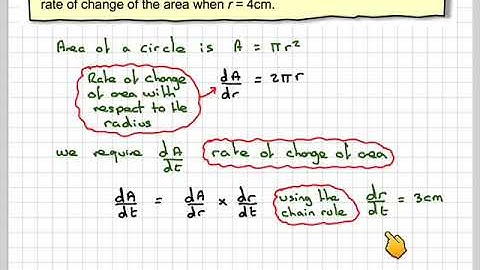 rate of change of the area when r = 4cm.
Area of a circle is A = πr²
Rate of change of area with respect to the radius
dA/dr = 2πr
we require dA/dt rate of change of area
dA/dt = dA/dr × dr/dt using the chain rule dr/dt = 3cm